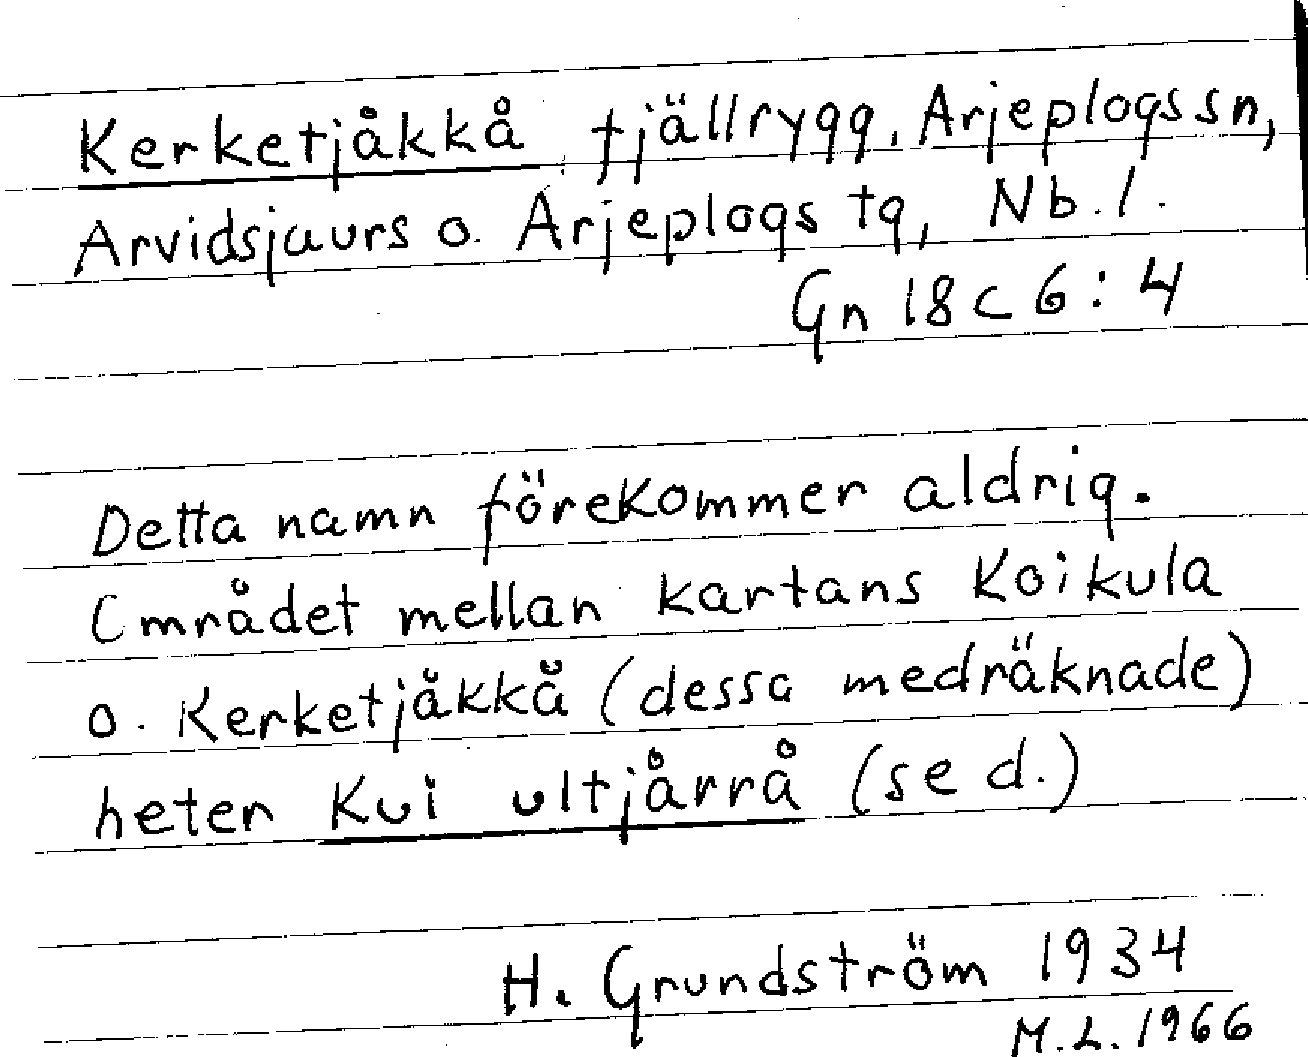 Kerketjåkkå fjällrygg, Arjeplogs sn,
Arvidsjaurs o. Arjeplogs tg, Nb. l.
Gn 18 c 6 : 4
Detta namn förekommer aldrig.
Området mellan kartans Koikula
o. Kerketjåkkå (dessa medräknade)
heter Kui ultjårrå (se d.)
H. Grundström 1934
M. L. 1966